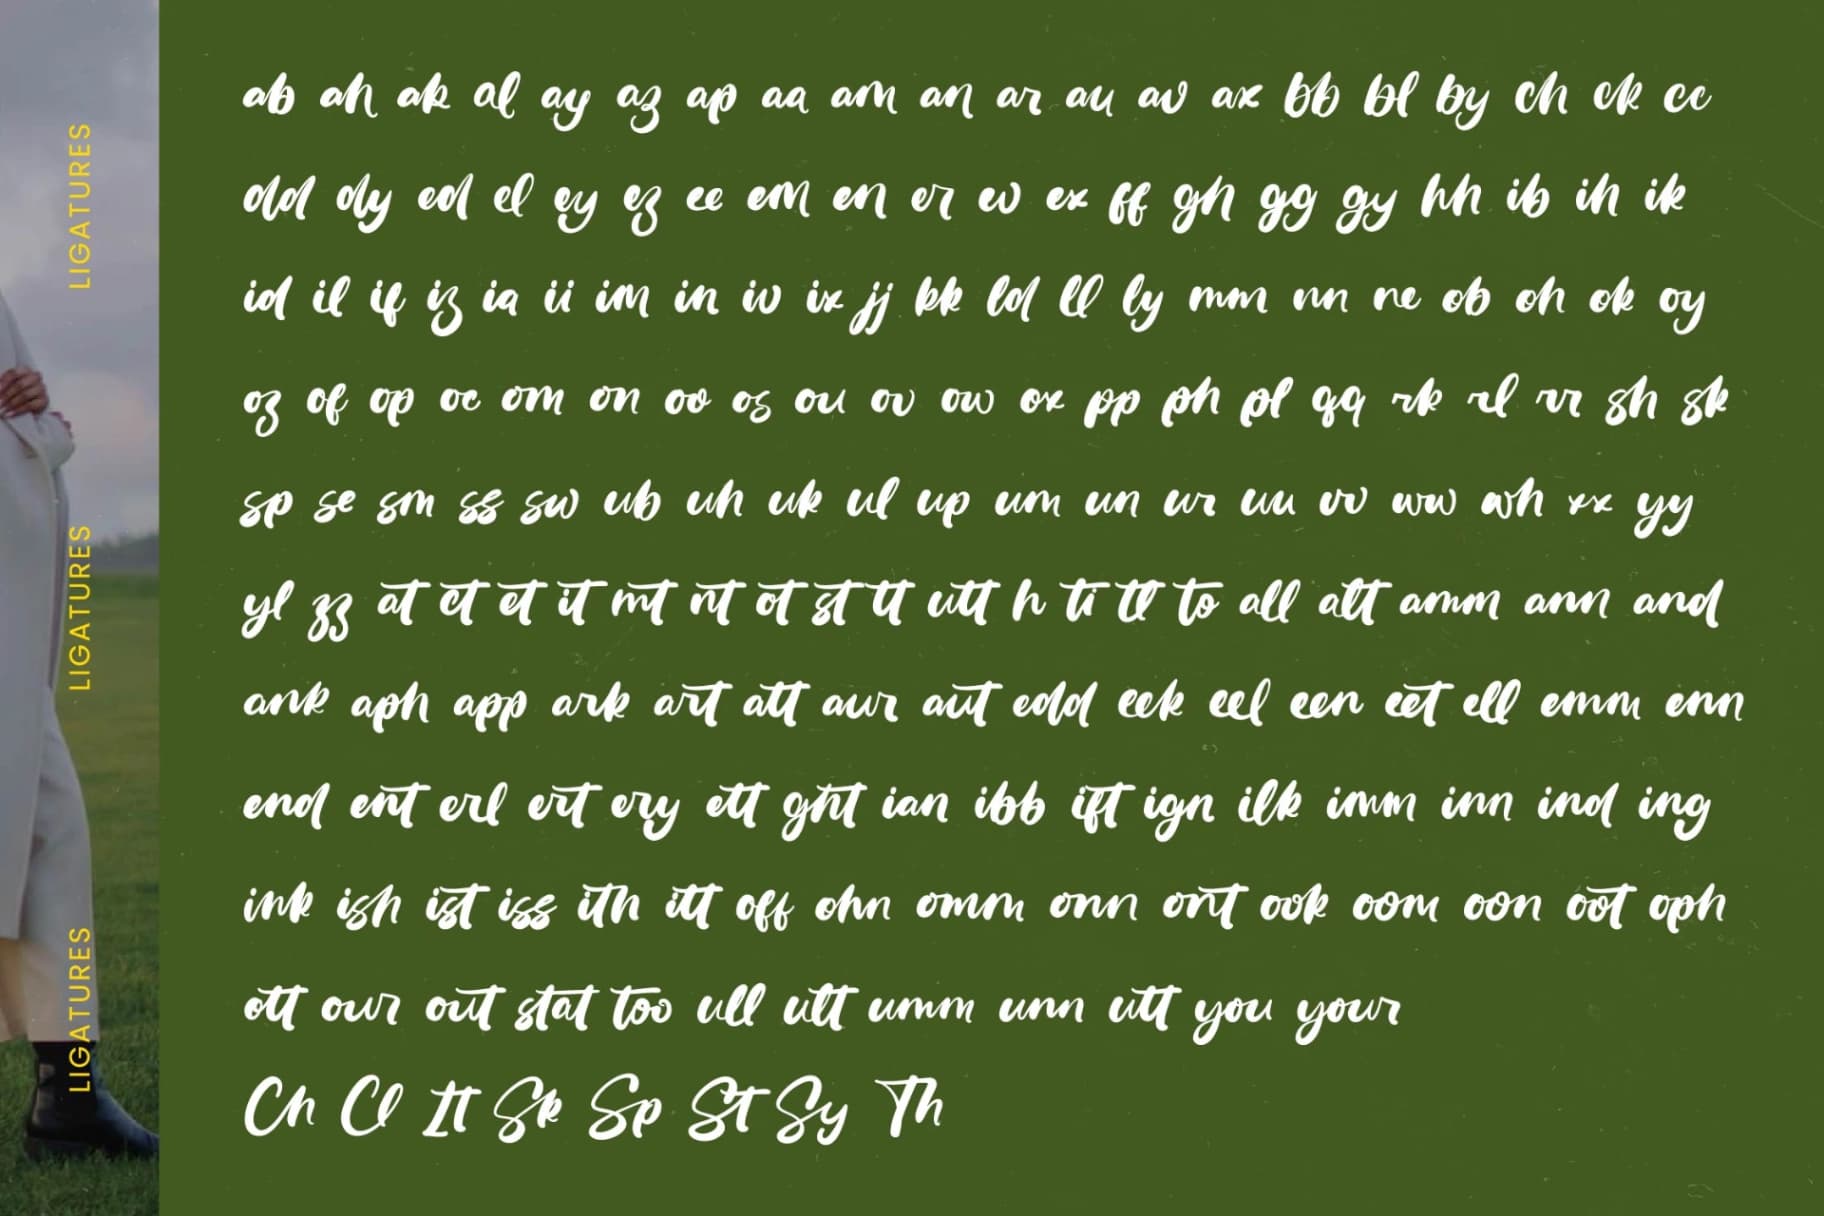 LIGATURES
LIGATURES
LIGATURES
ab ah ak al ay az ap aa am an ar au av ax bb bl by ch ck cc
dd dy ed el ey ez ee em en er ev ex ff gh gg gy hh ib ih ik
id il if iz ia ii im in iv ix jj kk ld ll ly mm nn ne ob oh ok oy
oz of op oc om on oo os ou ov ow ox pp ph pl qq rk rl rr sh sk
sp se sm ss sw ub uh uk ul up um un ur uu vv ww wh xx yy
yl zz at ct et it mt nt ot st tt utt h ti tl to all alt amm ann and
ank aph app ark art att aur aut edd eek eel een eet ell emm enn
end ent erl ert ery ett ght ian ibb ift ign ilk imm inn ind ing
ink ish ist iss ith itt off ohn omm onn ont ook oom oon oot oph
ott our out stat too ull ult umm unn utt you your
Ch Cl It Sk Sp St Sy Th